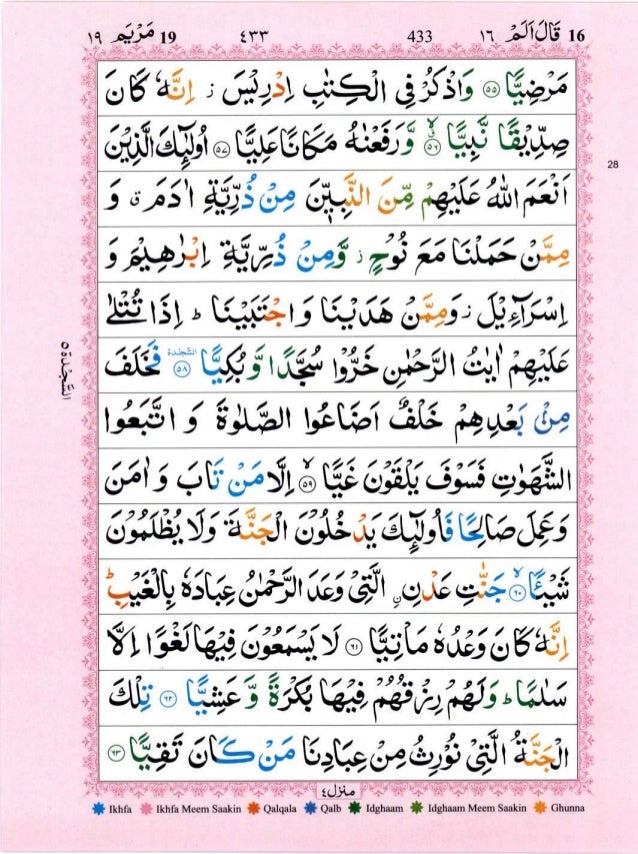 ١٩ مَرْيَم 19 ٤٣٣ 433 قَالَ اَلَمْ ١٦ 16
مَرْضِيًّا ۝٥٥ وَاذْكُرْ فِى الْكِتٰبِ اِدْرِيْسَ ز اِنَّهٗ كَانَ
صِدِّيْقًا نَّبِيًّا ۝٥٦ وَّرَفَعْنٰهُ مَكَانًا عَلِيًّا ۝٥٧ اُولٰٓئِكَ الَّذِيْنَ
اَنْعَمَ اللّٰهُ عَلَيْهِمْ مِّنَ النَّبِيّٖنَ مِنْ ذُرِّيَّةِ اٰدَمَ ق وَ
مِمَّنْ حَمَلْنَا مَعَ نُوْحٍ ز وَّمِنْ ذُرِّيَّةِ اِبْرٰهِيْمَ وَ
اِسْرَآءِيْلَ ز وَمِمَّنْ هَدَيْنَا وَاجْتَبَيْنَا ط اِذَا تُتْلٰى
عَلَيْهِمْ اٰيٰتُ الرَّحْمٰنِ خَرُّوْا سُجَّدًا وَّبُكِيًّا السَّجْدَة ۝٥٨ فَخَلَفَ
مِنْ بَعْدِهِمْ خَلْفٌ اَضَاعُوا الصَّلٰوةَ وَاتَّبَعُوا
الشَّهَوٰتِ فَسَوْفَ يَلْقَوْنَ غَيًّا ۝٥٩ اِلَّا مَنْ تَابَ وَاٰمَنَ
وَعَمِلَ صَالِحًا فَاُولٰٓئِكَ يَدْخُلُوْنَ الْجَنَّةَ وَلَا يُظْلَمُوْنَ
شَيْـًٔا ۝٦٠ جَنّٰتِ عَدْنِ ࣙالَّتِىْ وَعَدَ الرَّحْمٰنُ عِبَادَهٗ بِالْغَيْبِ ط
اِنَّهٗ كَانَ وَعْدُهٗ مَاْتِيًّا ۝٦١ لَا يَسْمَعُوْنَ فِيْهَا لَغْوًا اِلَّا
سَلٰمًا ط وَلَهُمْ رِزْقُهُمْ فِيْهَا بُكْرَةً وَّعَشِيًّا ۝٦٢ تِلْكَ
الْجَنَّةُ الَّتِىْ نُوْرِثُ مِنْ عِبَادِنَا مَنْ كَانَ تَقِيًّا ۝٦٣
28
السَّجْدَة ٥
منزل ٤
Ikhfa Ikhfa Meem Saakin Qalqala Qalb Idghaam Idghaam Meem Saakin Ghunna